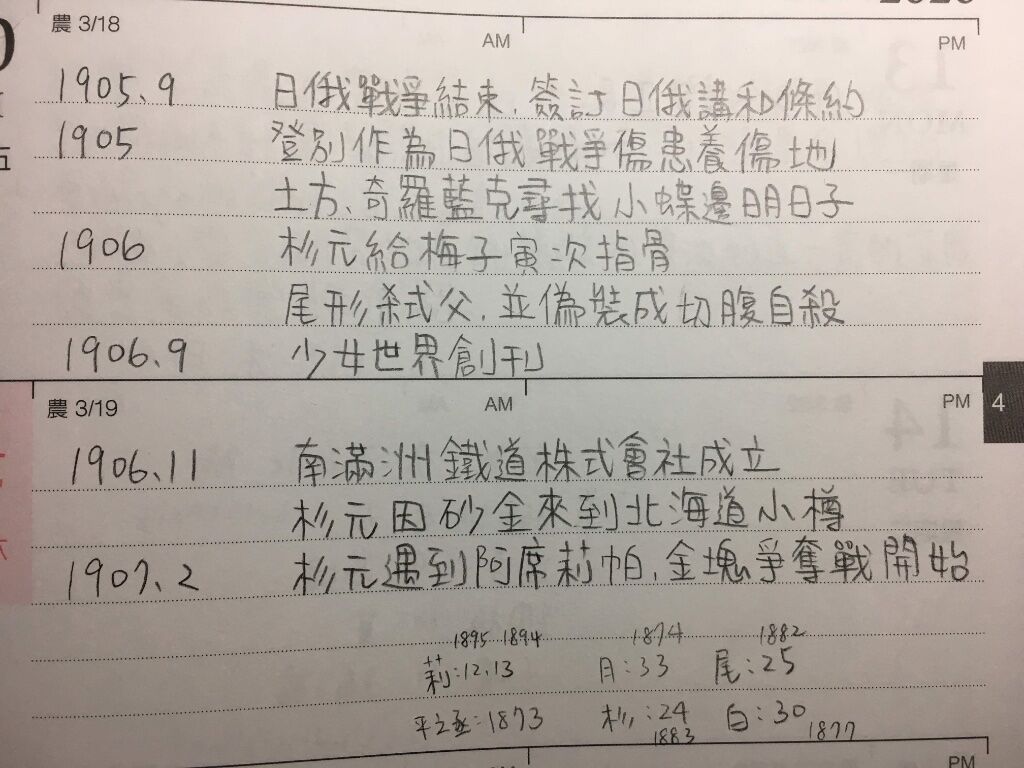 農 3/18
AM
PM
1905.9 日俄戰爭結束.簽訂日俄講和條約
1905 登別作為日俄戰爭傷患養傷地
土方、奇羅藍克尋找小蝶邊明日子
1906 杉元給梅子寅次指骨
尾形弒父.並偽裝成切腹自殺
1906.9 少女世界創刊
農 3/19
AM
PM
4
1906.11 南滿洲鐵道株式會社成立
杉元因砂金來到北海道小樽
1907.2 杉元遇到阿席莉帕.金塊爭奪戰開始
1895 1894 1874 1882
莉:12.13 月:33 尾:25
平之丞:1873 杉:24 白:30
1883 1877
AM
PM